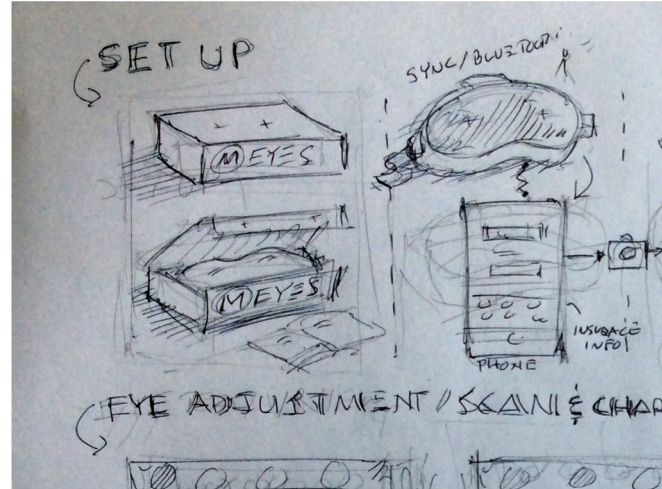 SET UP
SYNC/BLUETOOTH
MEYES
MEYES
INSURACE
INFO
PHONE
EYE ADJUSTMENT / SCAN & CHAR